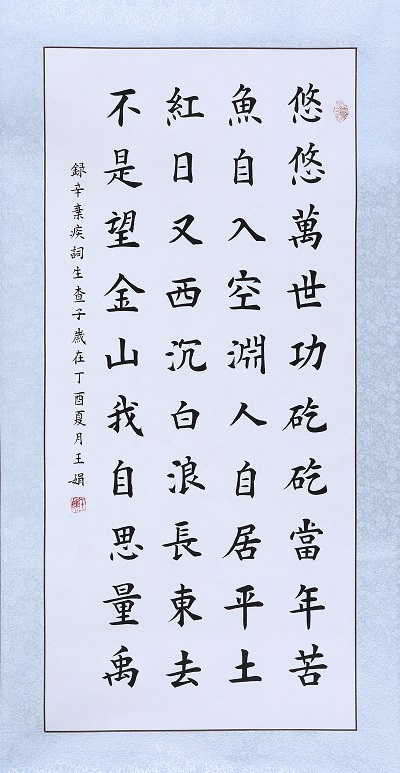 悠悠萬世功矻矻當年苦
魚自入空淵人自居平土
紅日又西沉白浪長東去
不是望金山我自思量禹
録辛棄疾詞生查子歲在丁酉夏月王娟